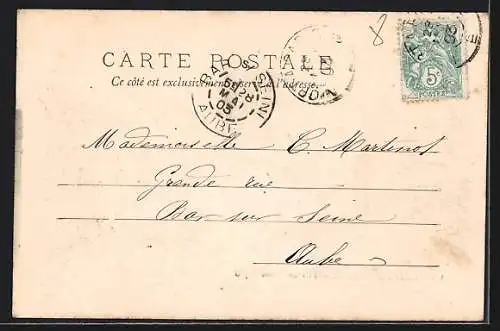 8
CARTE POSTALE
Ce côté est exclusivement réservé à l'adresse.
BAR S SEINE
28
MAI
03
AUBE
5c
Mademoiselle C. Martinot
Grande rue
Bar sur Seine
Aube